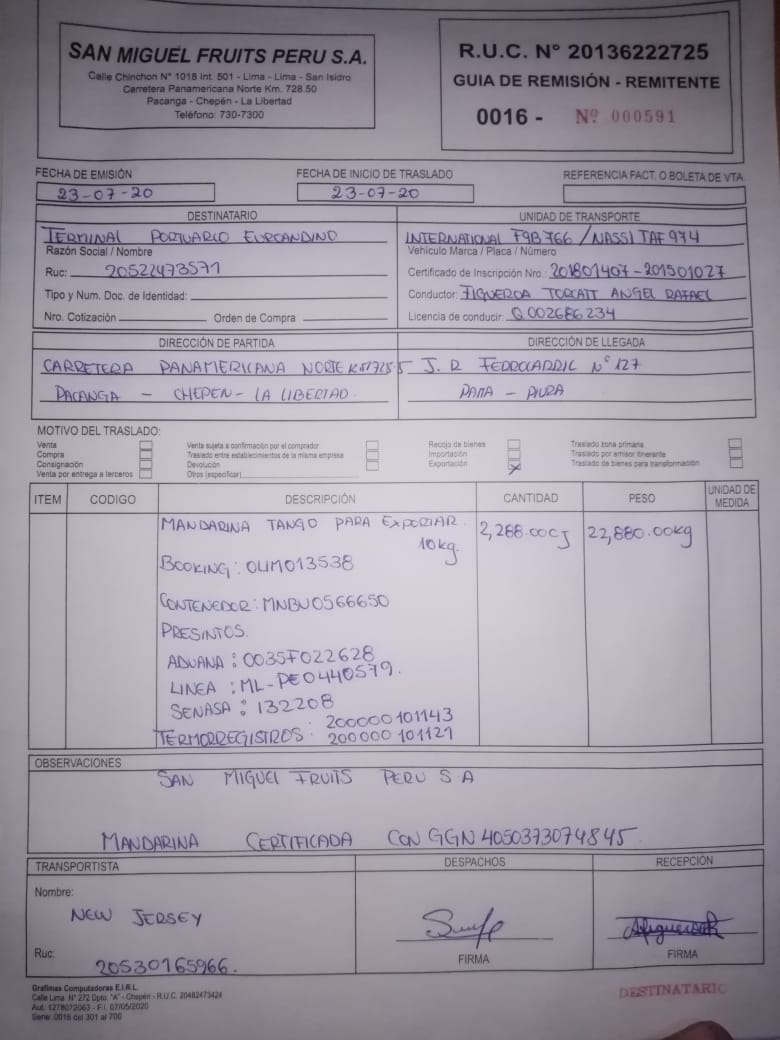 SAN MIGUEL FRUITS PERU S.A.
Calle Chinchon N° 1018 Int. 501 - Lima - Lima - San Isidro
Carretera Panamericana Norte Km. 728.50
Pacanga - Chepén - La Libertad
Teléfono: 730-7300
R.U.C. N° 20136222725
GUIA DE REMISIÓN - REMITENTE
0016 - Nº 000591
FECHA DE EMISIÓN
23-07-20
FECHA DE INICIO DE TRASLADO
23-07-20
REFERENCIA FACT. O BOLETA DE VTA.
DESTINATARIO
TERMINAL PORTUARIO EUROANDINO
Razón Social / Nombre
Ruc: 20522473571
Tipo y Num. Doc. de Identidad:
Nro. Cotización Orden de Compra
UNIDAD DE TRANSPORTE
INTERNATIONAL F9B766 / NASSI TAF974
Vehículo Marca / Placa / Número
Certificado de Inscripción Nro.: 201801407-201501027
Conductor: FIGUEROA TORCATT ANGEL RAFAEL
Licencia de conducir: Q002686234
DIRECCIÓN DE PARTIDA
CARRETERA PANAMERICANA NORTE KM 728.5
PACANGA - CHEPEN - LA LIBERTAD.
DIRECCIÓN DE LLEGADA
J. R FERROCARRIL N° 127
PAITA - PIURA
MOTIVO DEL TRASLADO:
Venta
Compra
Consignación
Venta por entrega a terceros
Venta sujeta a confirmación por el comprador
Traslado entre establecimientos de la misma empresa
Devolución
Otros (especificar)
Recojo de bienes
Importación
Exportación X
Traslado zona primaria
Traslado por emisor itinerante
Traslado de bienes para transformación
ITEM CODIGO DESCRIPCIÓN CANTIDAD PESO UNIDAD DE MEDIDA
MANDARINA TANGO PARA EXPORTAR. 2,288.00CJ 22,880.00kg
10kg.
BOOKING: OLIM013538
CONTENEDOR: MNBU0566650
PRESINTOS.
ADUANA: 0035F022628
LINEA: ML-PE0440579.
SENASA: 132208
TERMORREGISTROS: 200000101143
200000101121
OBSERVACIONES
SAN MIGUEL FRUITS PERU S.A
MANDARINA CERTIFICADA CON GGN 4050373074845
TRANSPORTISTA
Nombre:
NEW JERSEY
Ruc:
20530165966.
DESPACHOS
FIRMA
RECEPCIÓN
FIRMA
Grafimas Computadoras E.I.R.L.
Calle Lima N° 272 Dpto. "A" - Chepén - R.U.C. 20482473424
Aut. 1278072063 - F.I. 07/05/2020
Serie: 0016 del 301 al 700
DESTINATARIO